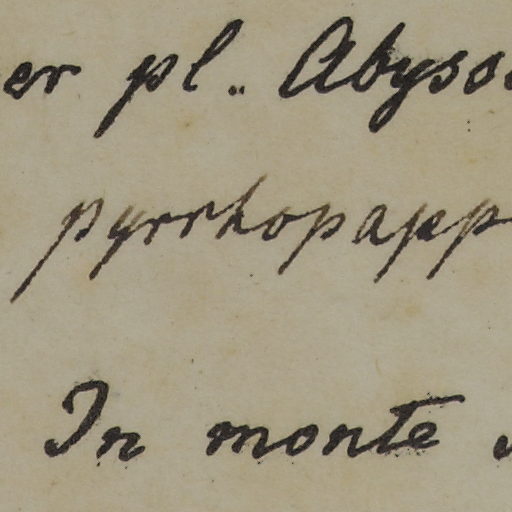 er pl. Abyso
pyrrhopapp
In monte